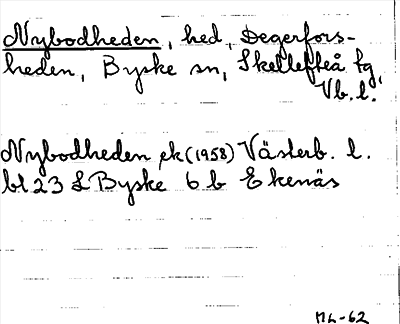 Nybodheden, hed, Degerfors-
heden, Byske sn, Skellefteå tg,
Vb. l.
Nybodheden ek (1958) Västerb. l.
bl 23 L Byske 6 b Ekenäs
Mb-62